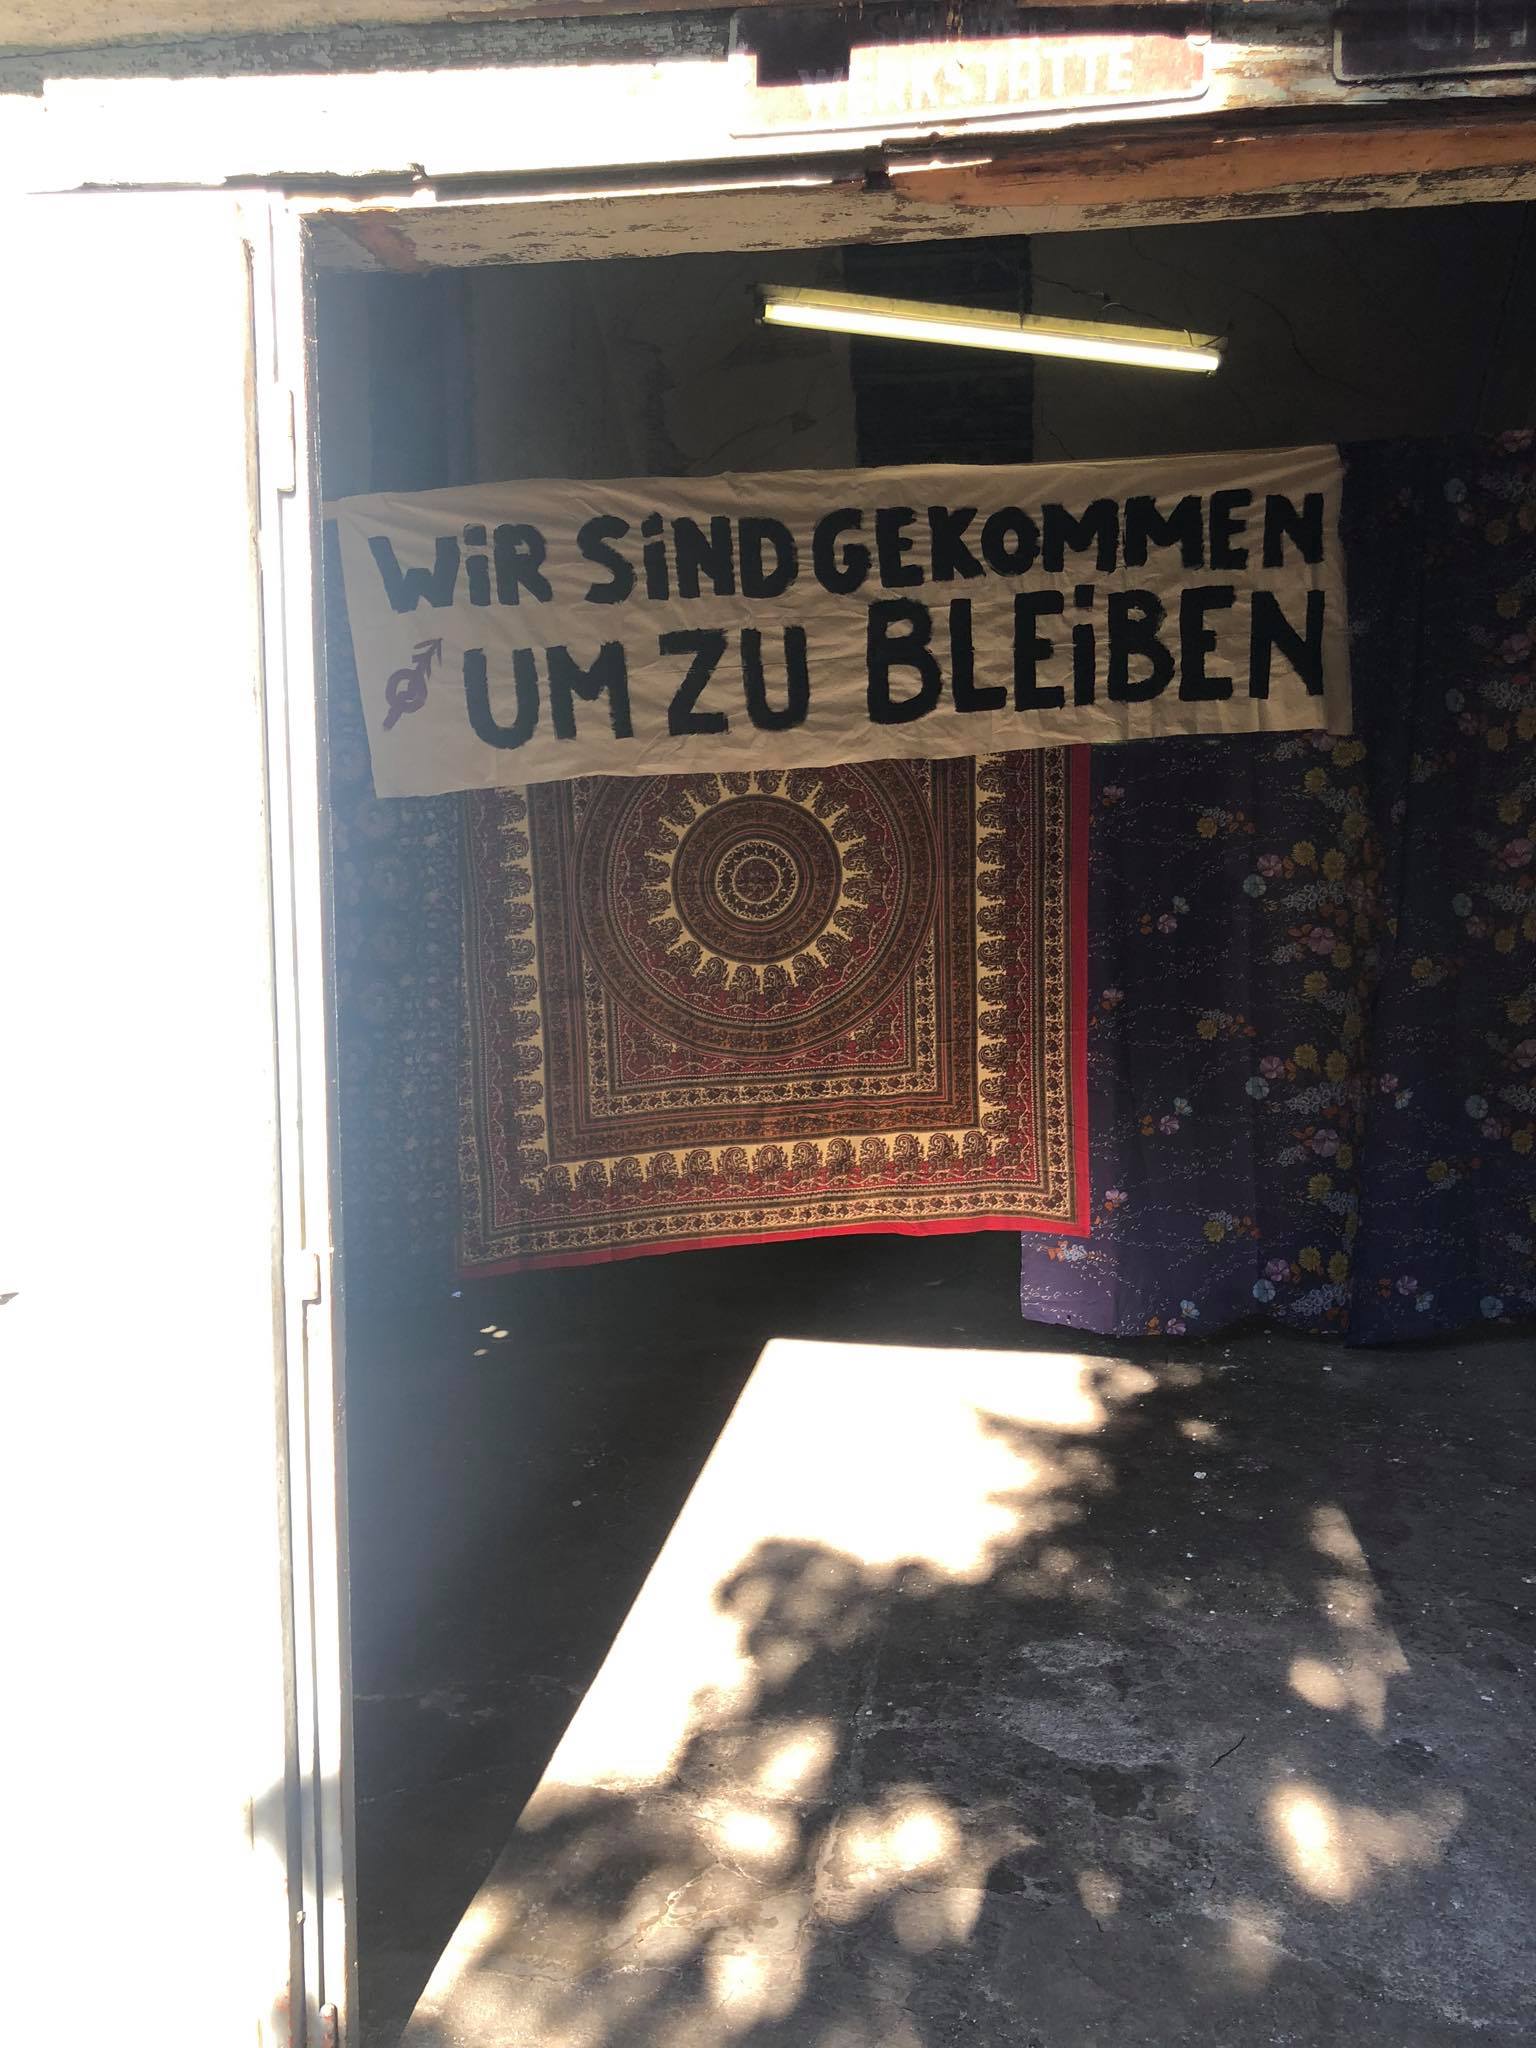 WERKSTÄTTE
WiR SiND GEKOMMEN
UM ZU BLEiBEN